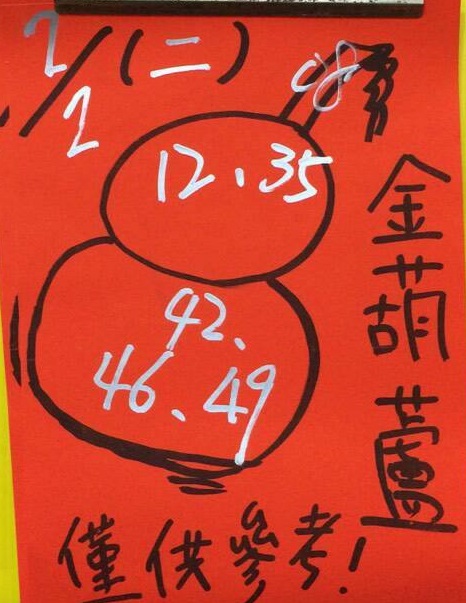 2/2(二)
08
12、35
42、
46、49
金葫蘆
僅供參考!